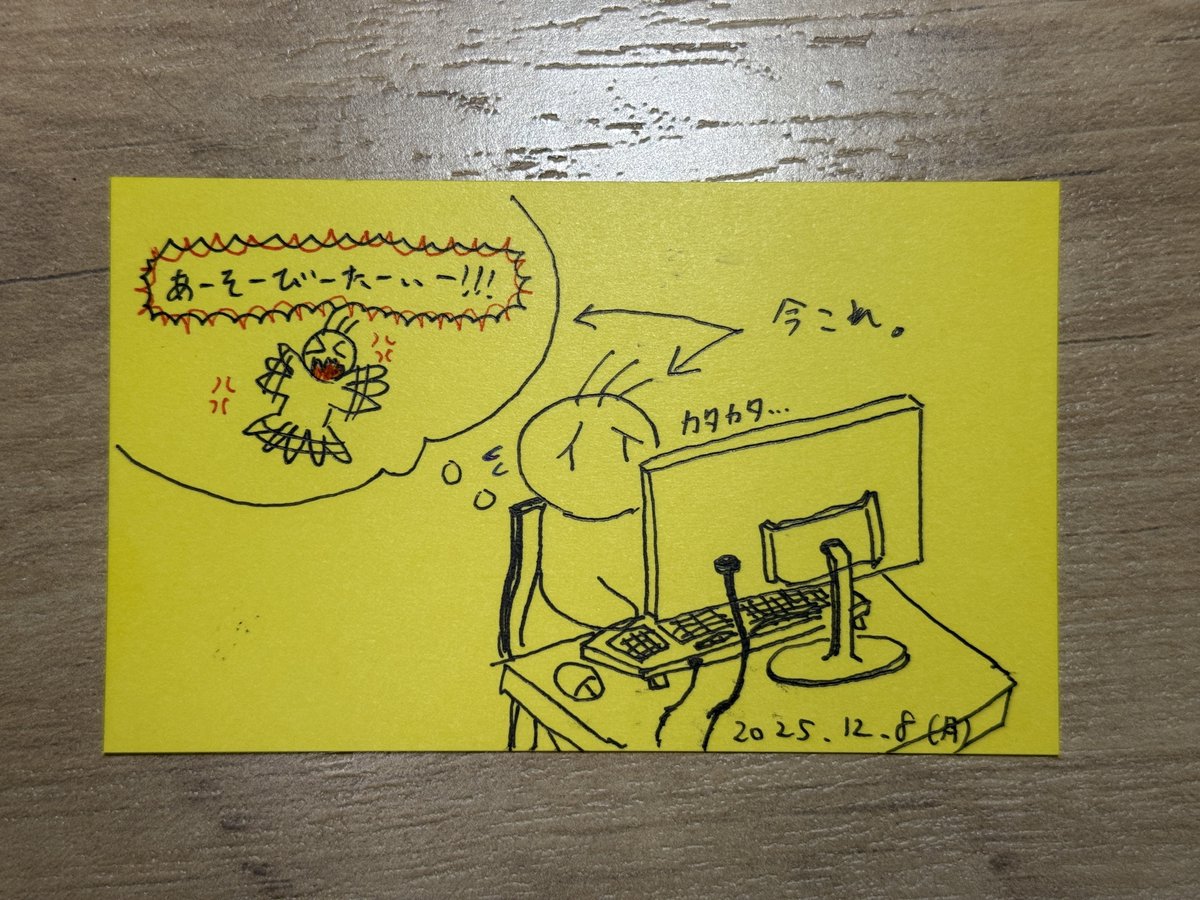 あーそーびーたーいー!!!
今これ。
カタカタ...
2025.12.8(月)